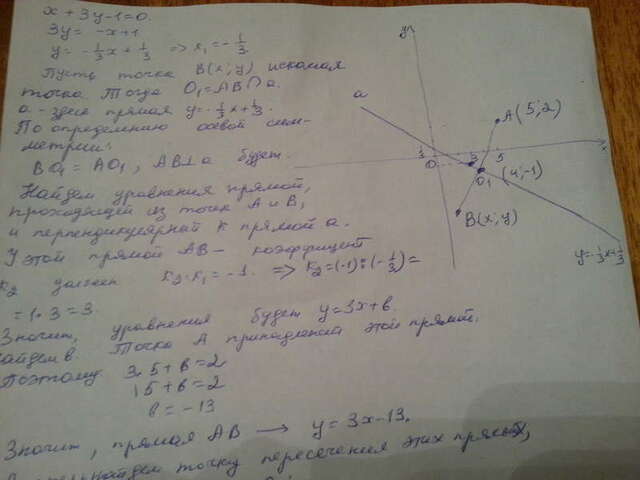 x + 3y - 1 = 0.
3y = -x + 1
y = -1/3 x + 1/3 => k₁ = -1/3.
Пусть точка B(x; y) искомая
точка. Тогда O₁ = AB ∩ a.
a - здесь прямая y = -1/3 x + 1/3.
По определению осевой сим-
метрии:
BO₁ = AO₁, AB ⊥ a будет.
Найдем уравнения прямой,
проходящей из точек A и B,
и перпендикулярный к прямой a.
У этой прямой AB - коэффицент
k₂ должен k₂·k₁ = -1. => k₂ = (-1) : (-1/3) =
= 1·3 = 3.
Значит, уравнения будет y = 3x + b.
Найдем b. Точка A принадлежит этой прямой.
Поэтому 3·5 + b = 2
15 + b = 2
b = -13
Значит, прямая AB → y = 3x - 13.
найдем точку пересечения этих прямых,
y
a
A(5; 2)
1/3
3
5
x
O
O₁
(4; -1)
B(x; y)
y = -1/3 x + 1/3